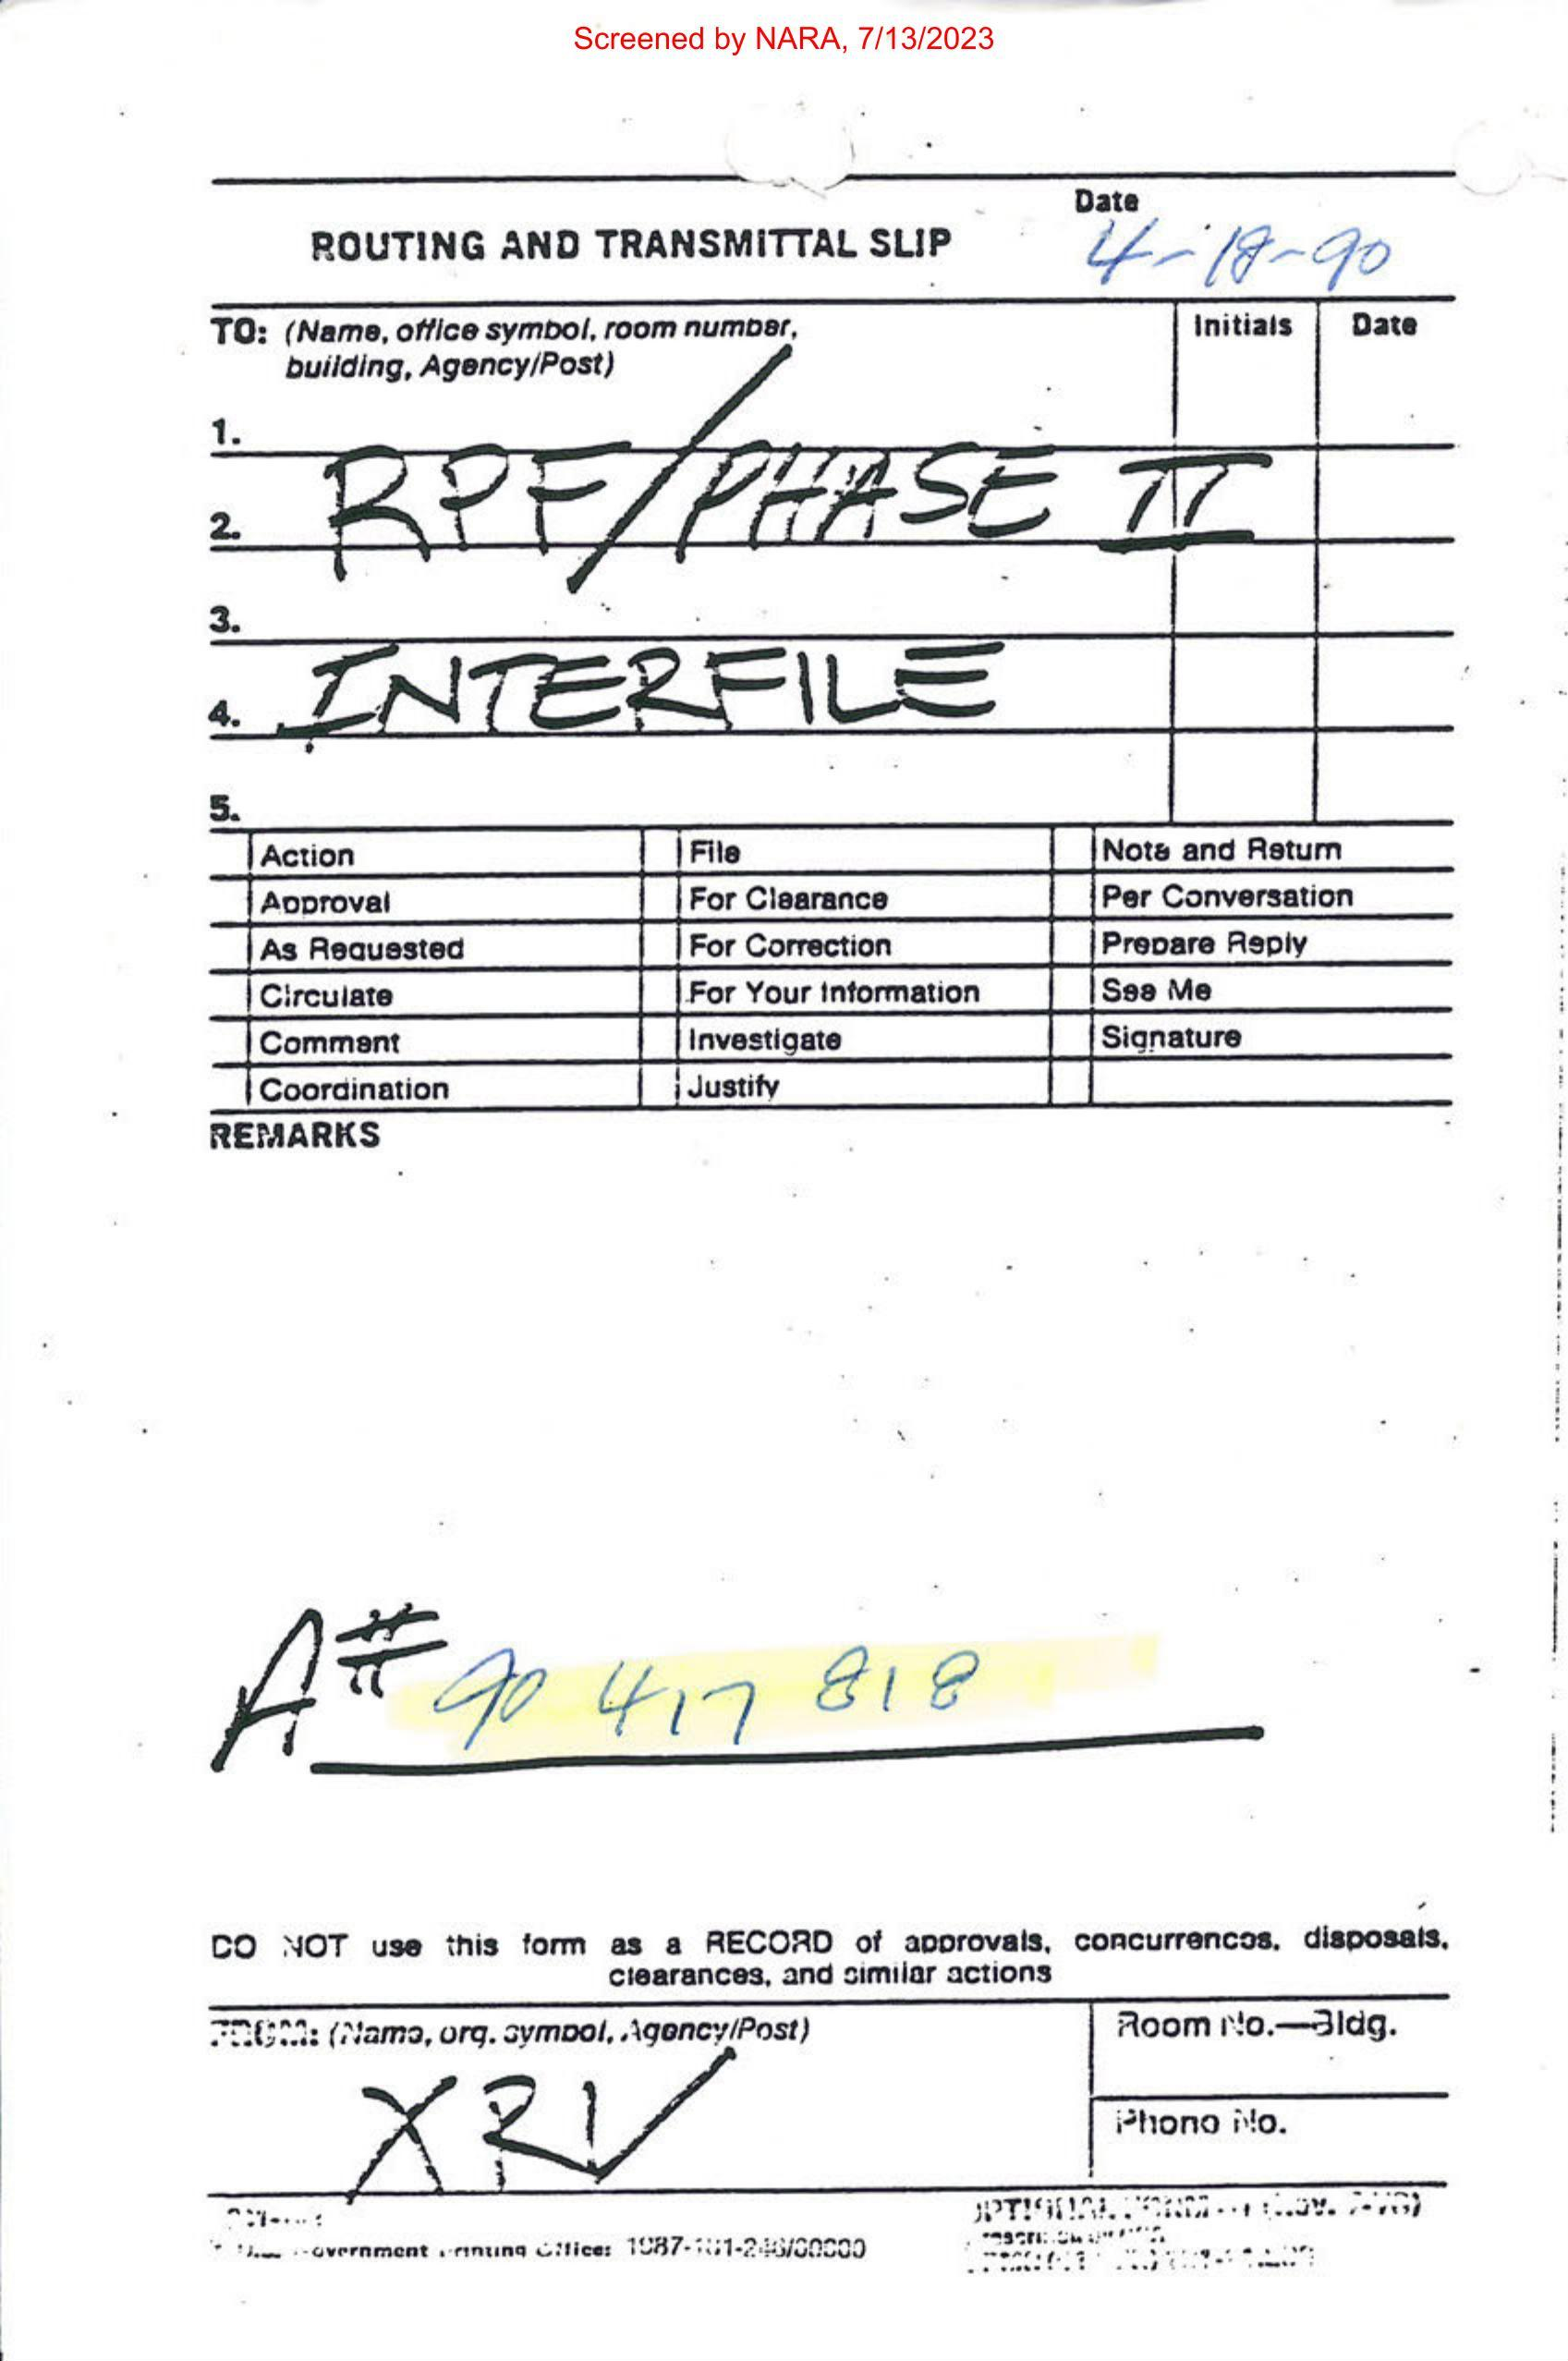 Screened by NARA, 7/13/2023
ROUTING AND TRANSMITTAL SLIP
Date
4-18-90
TO: (Name, office symbol, room number,
building, Agency/Post)
Initials
Date
1.
RPF/PHASE II
2.
3.
INTERFILE
4.
5.
Action File Note and Return
Approval For Clearance Per Conversation
As Requested For Correction Prepare Reply
Circulate For Your Information See Me
Comment Investigate Signature
Coordination Justify
REMARKS
A# 90 417 818
DO NOT use this form as a RECORD of approvals, concurrences, disposals,
clearances, and similar actions
FROM: (Name, org. symbol, Agency/Post)
Room No.—Bldg.
XRV
Phone No.
OPTIONAL FORM
Government Printing Office: